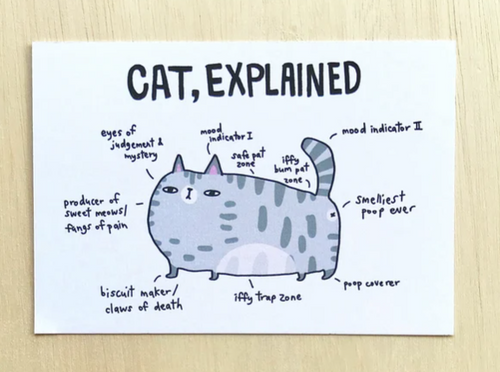 CAT, EXPLAINED
eyes of
judgement &
mystery
mood
indicator I
safe pat
zone
iffy
bum pat
zone
mood indicator II
producer of
sweet meows/
fangs of pain
smelliest
poop ever
biscuit maker/
claws of death
iffy trap zone
poop coverer